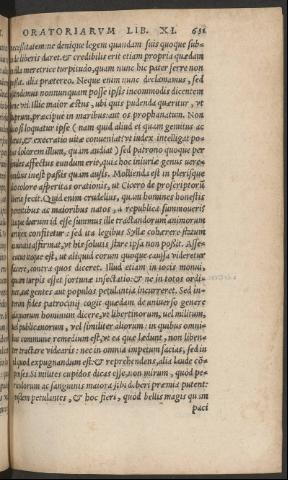 ORATORIARVM LIB. XI. 631
necessitatem: ne denique legem quandam suis quoque sub-
liberis daret. & credibilis erit etiam propria quædam
meretrice turpitudo, quam nunc hic pater ferre non
alia prætereo. Neque enim nunc declamamus, sed
nonnunquam posse ipsis incommodis dicentem
Illic maior æstus, ubi quis pudenda queritur, ut
præcipue in maribus: aut os prophanatum. Non
si loquatur ipse (nam quid aliud ei quam gemitus ac
& execratio vitæ conueniat? ut index intelligat po-
dolorem illum, quam audiat) sed patrono quoque per
affectus eundum erit, quia hoc iniuriæ genus vere-
inest passis quam ausis. Mollienda est in plerisque
colore asperitas orationis, ut Cicero de proscriptorum
fecit. Quid enim crudelius, quam homines honestis
parentibus ac maioribus natos, a republica summoueri?
durum id esse summus ille tractandorum animorum
confitetur: sed ita legibus Syllæ cohærere statum
affirmat, ut his solutis stare ipsa non possit. Asse-
est, ut aliquid eorum quoque caussa videretur
facere, contra quos diceret. Illud etiam in iocis monui,
quam turpis esset fortunæ insectatio: & ne in totos ordi-
nes, aut gentes aut populos petulantia incurreret. Sed in-
fides patrocinij cogit quædam de vniuerso genere
aliquorum hominum dicere, vt libertinorum, vel militum,
vel publicanorum, vel similiter aliorum: in quibus omni-
bus commune remedium est, vt ea quæ lædunt, non liben-
ter tractare videaris: nec in omnia impetum facias, sed in
quod expugnandum est: & reprehendens, alia laude com-
penses. Si milites cupidos dicas esse, non mirum, quod pe-
riculorum ac sanguinis maiora sibi deberi præmia putent:
eosdem petulantes, & hoc fieri, quod bellis magis quam
paci